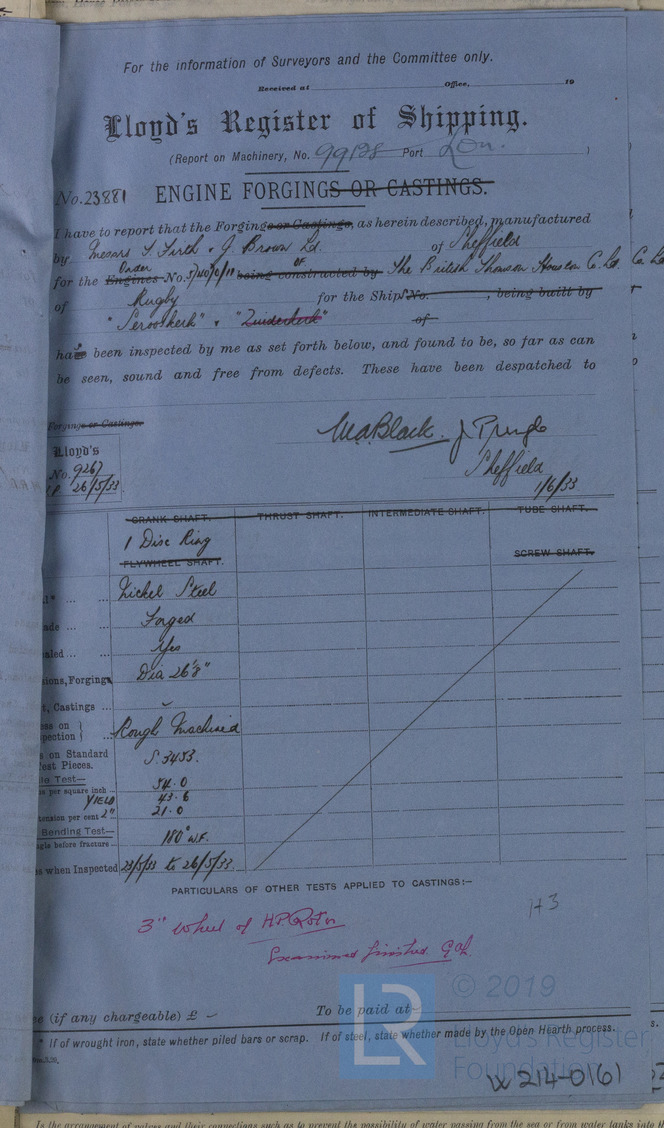 For the information of Surveyors and the Committee only.
Received at Office, 19
Lloyd's Register of Shipping.
(Report on Machinery, No. 99128 Port Lon. )
No. 23881 ENGINE FORGINGS OR CASTINGS.
I have to report that the Forgings or Castings, as herein described, manufactured
by Messrs T. Firth & J. Brown Ld. of Sheffield
for the Engines Order No. being constructed by of The British Thomson Houston Co. Ld.
of Rugby for the Ship No. , being built by
"Serooskerk" & "Zuiderkerk" of
has been inspected by me as set forth below, and found to be, so far as can
be seen, sound and free from defects. These have been despatched to
Forgings or Castings.
W.A. Black. J. Pringle
Lloyd's
No. 9267
26/5/33
Sheffield
1/6/33
CRANK SHAFT. THRUST SHAFT. INTERMEDIATE SHAFT. TUBE SHAFT.
1 Disc Ring
FLYWHEEL SHAFT. SCREW SHAFT.
Nickel Steel
Forged
Yes
sions, Forgings Dia 26"8"
t, Castings ...
ess on
pection Rough Machined
s on Standard
est Pieces. S.3453.
le Test— 54.0
per square inch
YIELD 43.6
tension per cent 2" 21.0
Bending Test—
gle before fracture 180° W.F.
s when Inspected 23/5/33 to 26/5/33.
PARTICULARS OF OTHER TESTS APPLIED TO CASTINGS:—
H3
3" Wheel of H.P. Rotor
Examined finished
© 2019
e (if any chargeable) £ To be paid at
* If of wrought iron, state whether piled bars or scrap. If of steel, state whether made by the Open Hearth process.
LR Lloyd's Register
Foundation
W214-0161
Is the arrangement of valves and their connections such as to prevent the possibility of water passing from the sea or from water tanks into